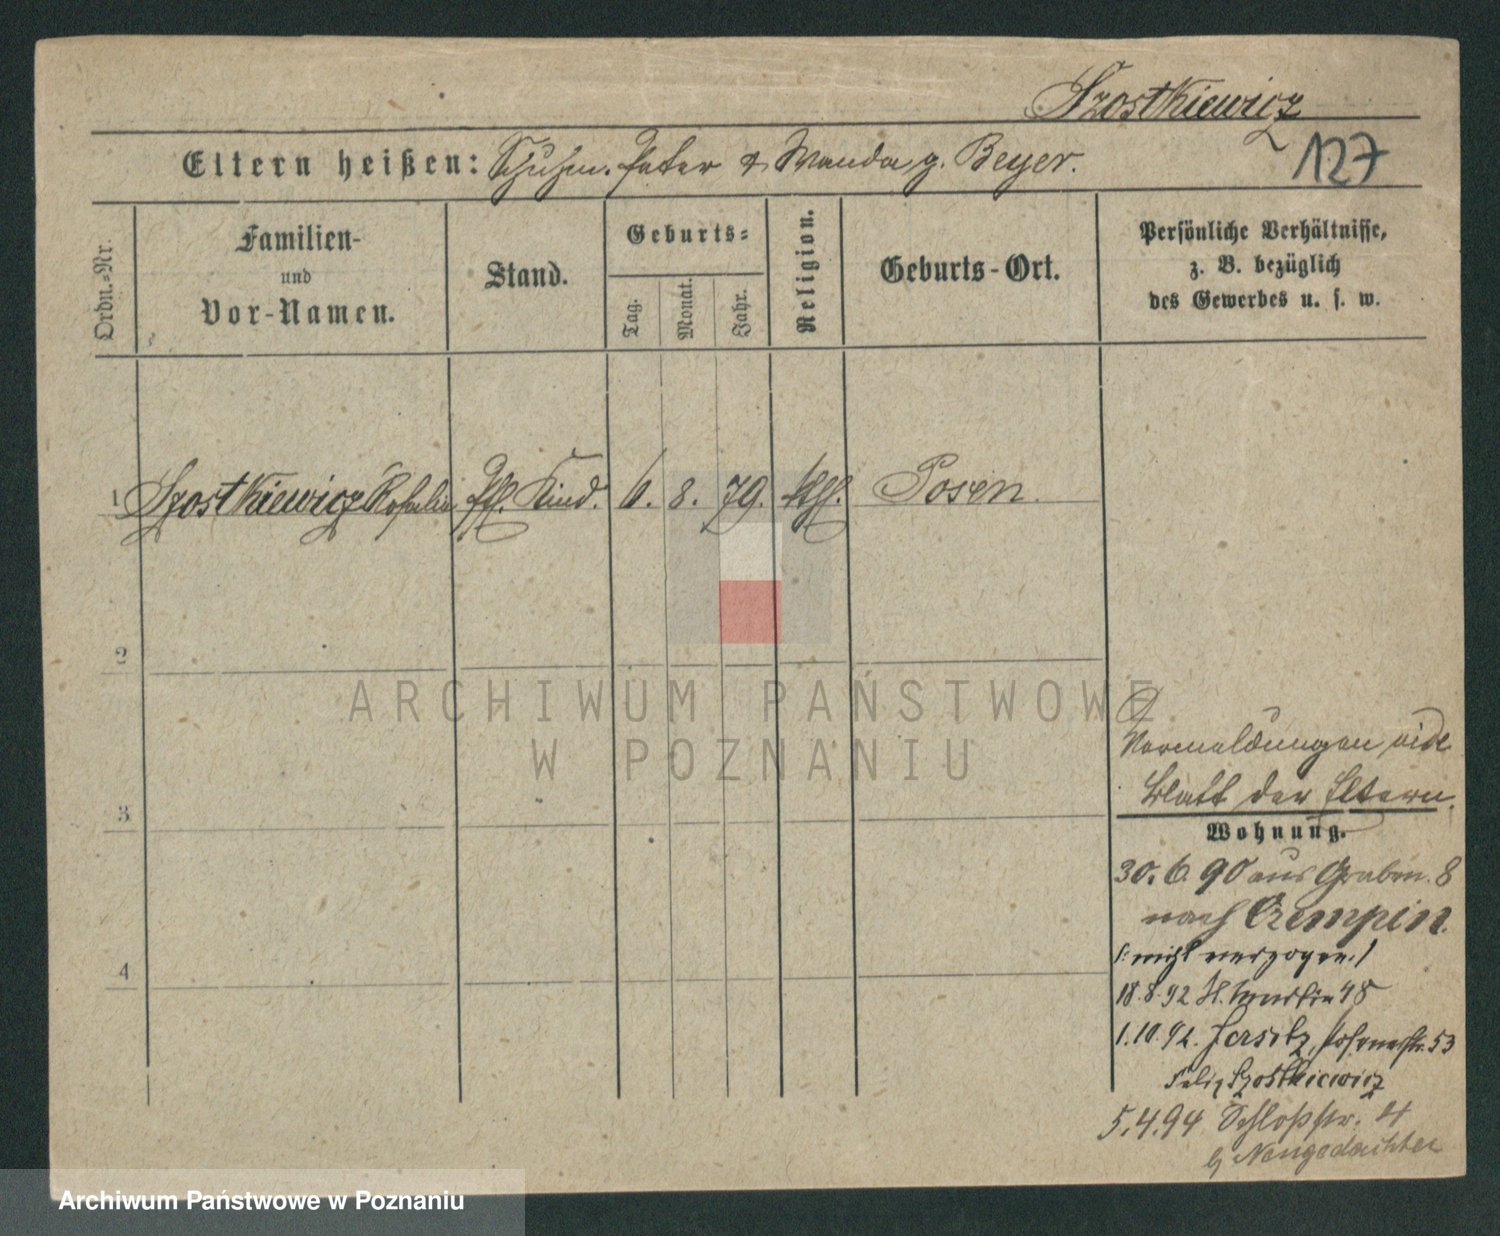 Szostkiewicz
127
Eltern heißen: Schuhm. Peter & Wanda g. Beyer.
Ordn.-Nr.
Familien-
und
Vor-Namen.
Stand.
Geburts-
Tag.
Monat.
Jahr.
Religion.
Geburts-Ort.
Persönliche Verhältnisse,
z. B. bezüglich
des Gewerbes u. s. w.
1 Szostkiewicz Rosalie Pfl. Kind. 6. 8. 79. kth. Posen
2
3
4
Vormeldungen vide
Blatt der Eltern.
Wohnung.
30. 6. 90 aus Graben. 8
nach Czempin.
/: nicht verzogen :/
18. 8. 92 St. Martin 48
1. 10. 92. Jersitz, Posenerstr. 53
Felix Szostkiewicz
5. 4. 94 Schloßstr. 4
b/ Neugedachter
ARCHIWUM PAŃSTWOWE
W POZNANIU
Archiwum Państwowe w Poznaniu